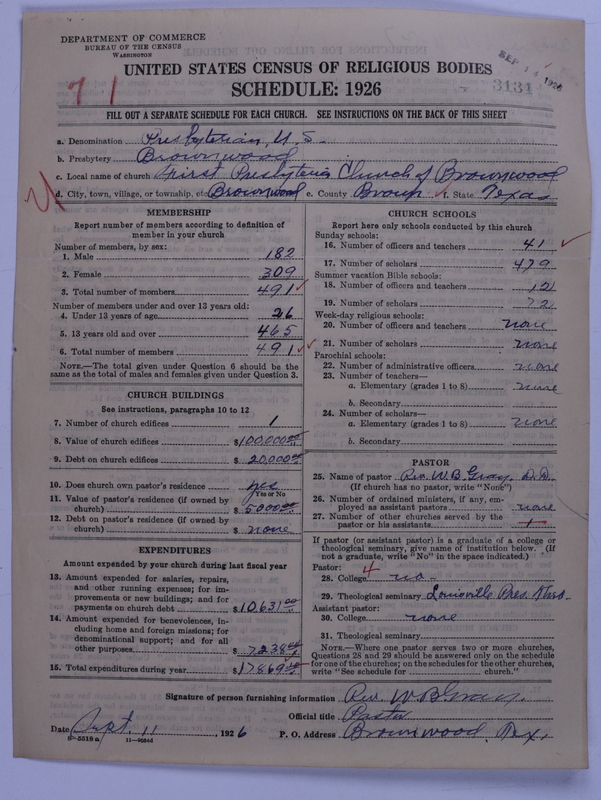 DEPARTMENT OF COMMERCE
BUREAU OF THE CENSUS
WASHINGTON
SEP 14 1926
3131
71
UNITED STATES CENSUS OF RELIGIOUS BODIES
SCHEDULE: 1926
FILL OUT A SEPARATE SCHEDULE FOR EACH CHURCH. SEE INSTRUCTIONS ON THE BACK OF THIS SHEET
a. Denomination Presbyterian U. S.
b. Presbytery Brownwood
c. Local name of church First Presbyterian Church of Brownwood
d. City, town, village, or township, etc Brownwood e. County Brown f. State Texas
MEMBERSHIP
Report number of members according to definition of
member in your church
Number of members, by sex:
1. Male 182
2. Female 309
3. Total number of members 491
Number of members under and over 13 years old:
4. Under 13 years of age 26
5. 13 years old and over 465
6. Total number of members 491
NOTE.—The total given under Question 6 should be
same as the total of males and females given under Question 3.
CHURCH BUILDINGS
See instructions, paragraphs 10 to 12
7. Number of church edifices 1
8. Value of church edifices $100,000.00
9. Debt on church edifices $20,000.00
10. Does church own pastor's residence yes
Yes or No
11. Value of pastor's residence (if owned by
church) $5000.00
12. Debt on pastor's residence (if owned by
church) $ none
EXPENDITURES
Amount expended by your church during last fiscal year
13. Amount expended for salaries, repairs,
and other running expenses; for im-
provements or new buildings; and for
payments on church debt $10,631.00
14. Amount expended for benevolences, in-
cluding home and foreign missions; for
denominational support; and for all
other purposes $7,238.00
15. Total expenditures during year $17,869.00
CHURCH SCHOOLS
Report here only schools conducted by this church
Sunday schools:
16. Number of officers and teachers 41
17. Number of scholars 479
Summer vacation Bible schools:
18. Number of officers and teachers 12
19. Number of scholars 72
Week-day religious schools:
20. Number of officers and teachers none
21. Number of scholars none
Parochial schools:
22. Number of administrative officers none
23. Number of teachers—
a. Elementary (grades 1 to 8) none
b. Secondary
24. Number of scholars—
a. Elementary (grades 1 to 8) none
b. Secondary
PASTOR
25. Name of pastor Rev. W. B. Gray, D. D.
(If church has no pastor, write "None")
26. Number of ordained ministers, if any, em-
ployed as assistant pastors none
27. Number of other churches served by the
pastor or his assistants 1
If pastor (or assistant pastor) is a graduate of a college or
theological seminary, give name of institution below. (If
not a graduate, write "No" in the space indicated.)
Pastor: 4
28. College no
29. Theological seminary Louisville Pres.
Assistant pastor:
30. College none
31. Theological seminary
NOTE.—Where one pastor serves two or more churches,
Questions 28 and 29 should be answered only on the schedule
for one of the churches; on the schedules for the other churches,
write "See schedule for church."
Signature of person furnishing information Rev. W B Gray.
Official title Pastor
Date Sept. 11, 1926 P. O. Address Brownwood Tex.
8-5519 a